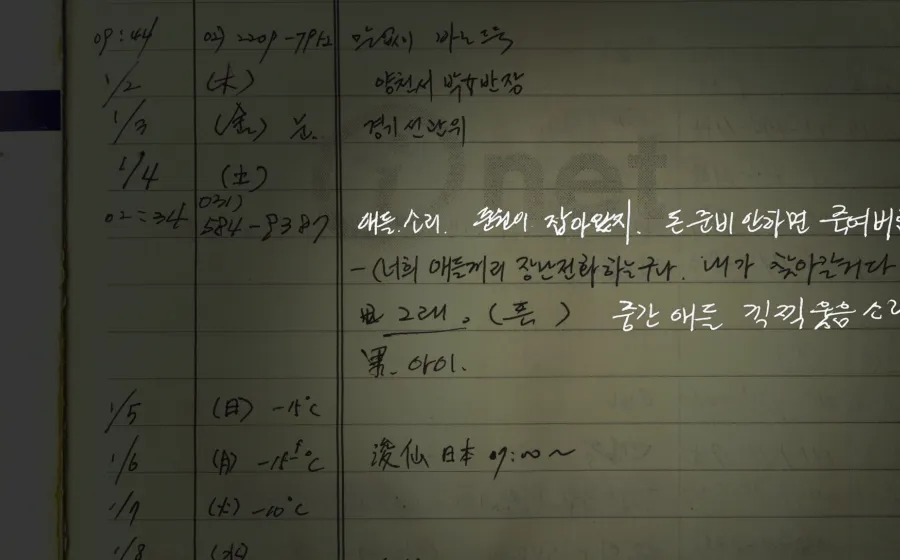 09:44 02) 2209-7952 말없이 바로 뚝
1/2 (木) 양천서 박女반장
1/3 (金) 눈. 경기 선관위
net
1/4 (土)
02:34 031) 584-9387 애들 소리. 잡아왔지. 돈 준비 안하면 죽여버
-(너희 애들끼리 장난전화 하는구나. 내가 찾아갈거다
그래. (흠) 중간 애들 킥킥 웃음 소리
男. 아이.
1/5 (日) -15°C
1/6 (月) °C 浚仙 日本 09:00~
1/7 (火) -10°C
1/8 (水)